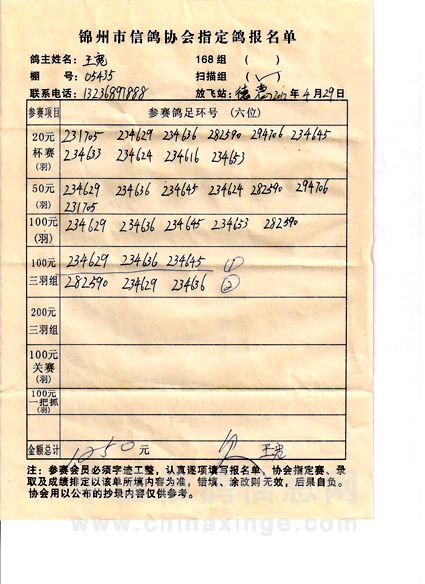 锦州市信鸽协会指定鸽报名单
鸽主姓名: 王宽 168组 ( )
棚 号: 05435 扫描组 (✓)
联系电话: 13236891888 放飞站: 德惠 2012年4月29日
参赛项目 参赛鸽足环号 (六位)
20元 231705 234629 234636 282590 294706 234645
杯赛 234633 234624 234616 234653
(羽)
50元 234629 234636 234645 234624 282590 294706
(羽) 231705
100元 234629 234636 234645 234653 282590
(羽)
100元 234629 234636 234645 ①
三羽组 282590 234629 234636 ②
200元
三羽组
100元
关赛
(羽)
100元
一把抓
(羽)
金额总计 1250 元 王宽
注: 参赛会员必须字迹工整, 认真逐项填写报名单、协会指定赛、录
取及成绩排定以该单所填内容为准, 错填、涂改则无效, 后果自负。
协会用以公布的抄录内容仅供参考。
www.chinaxinge.com